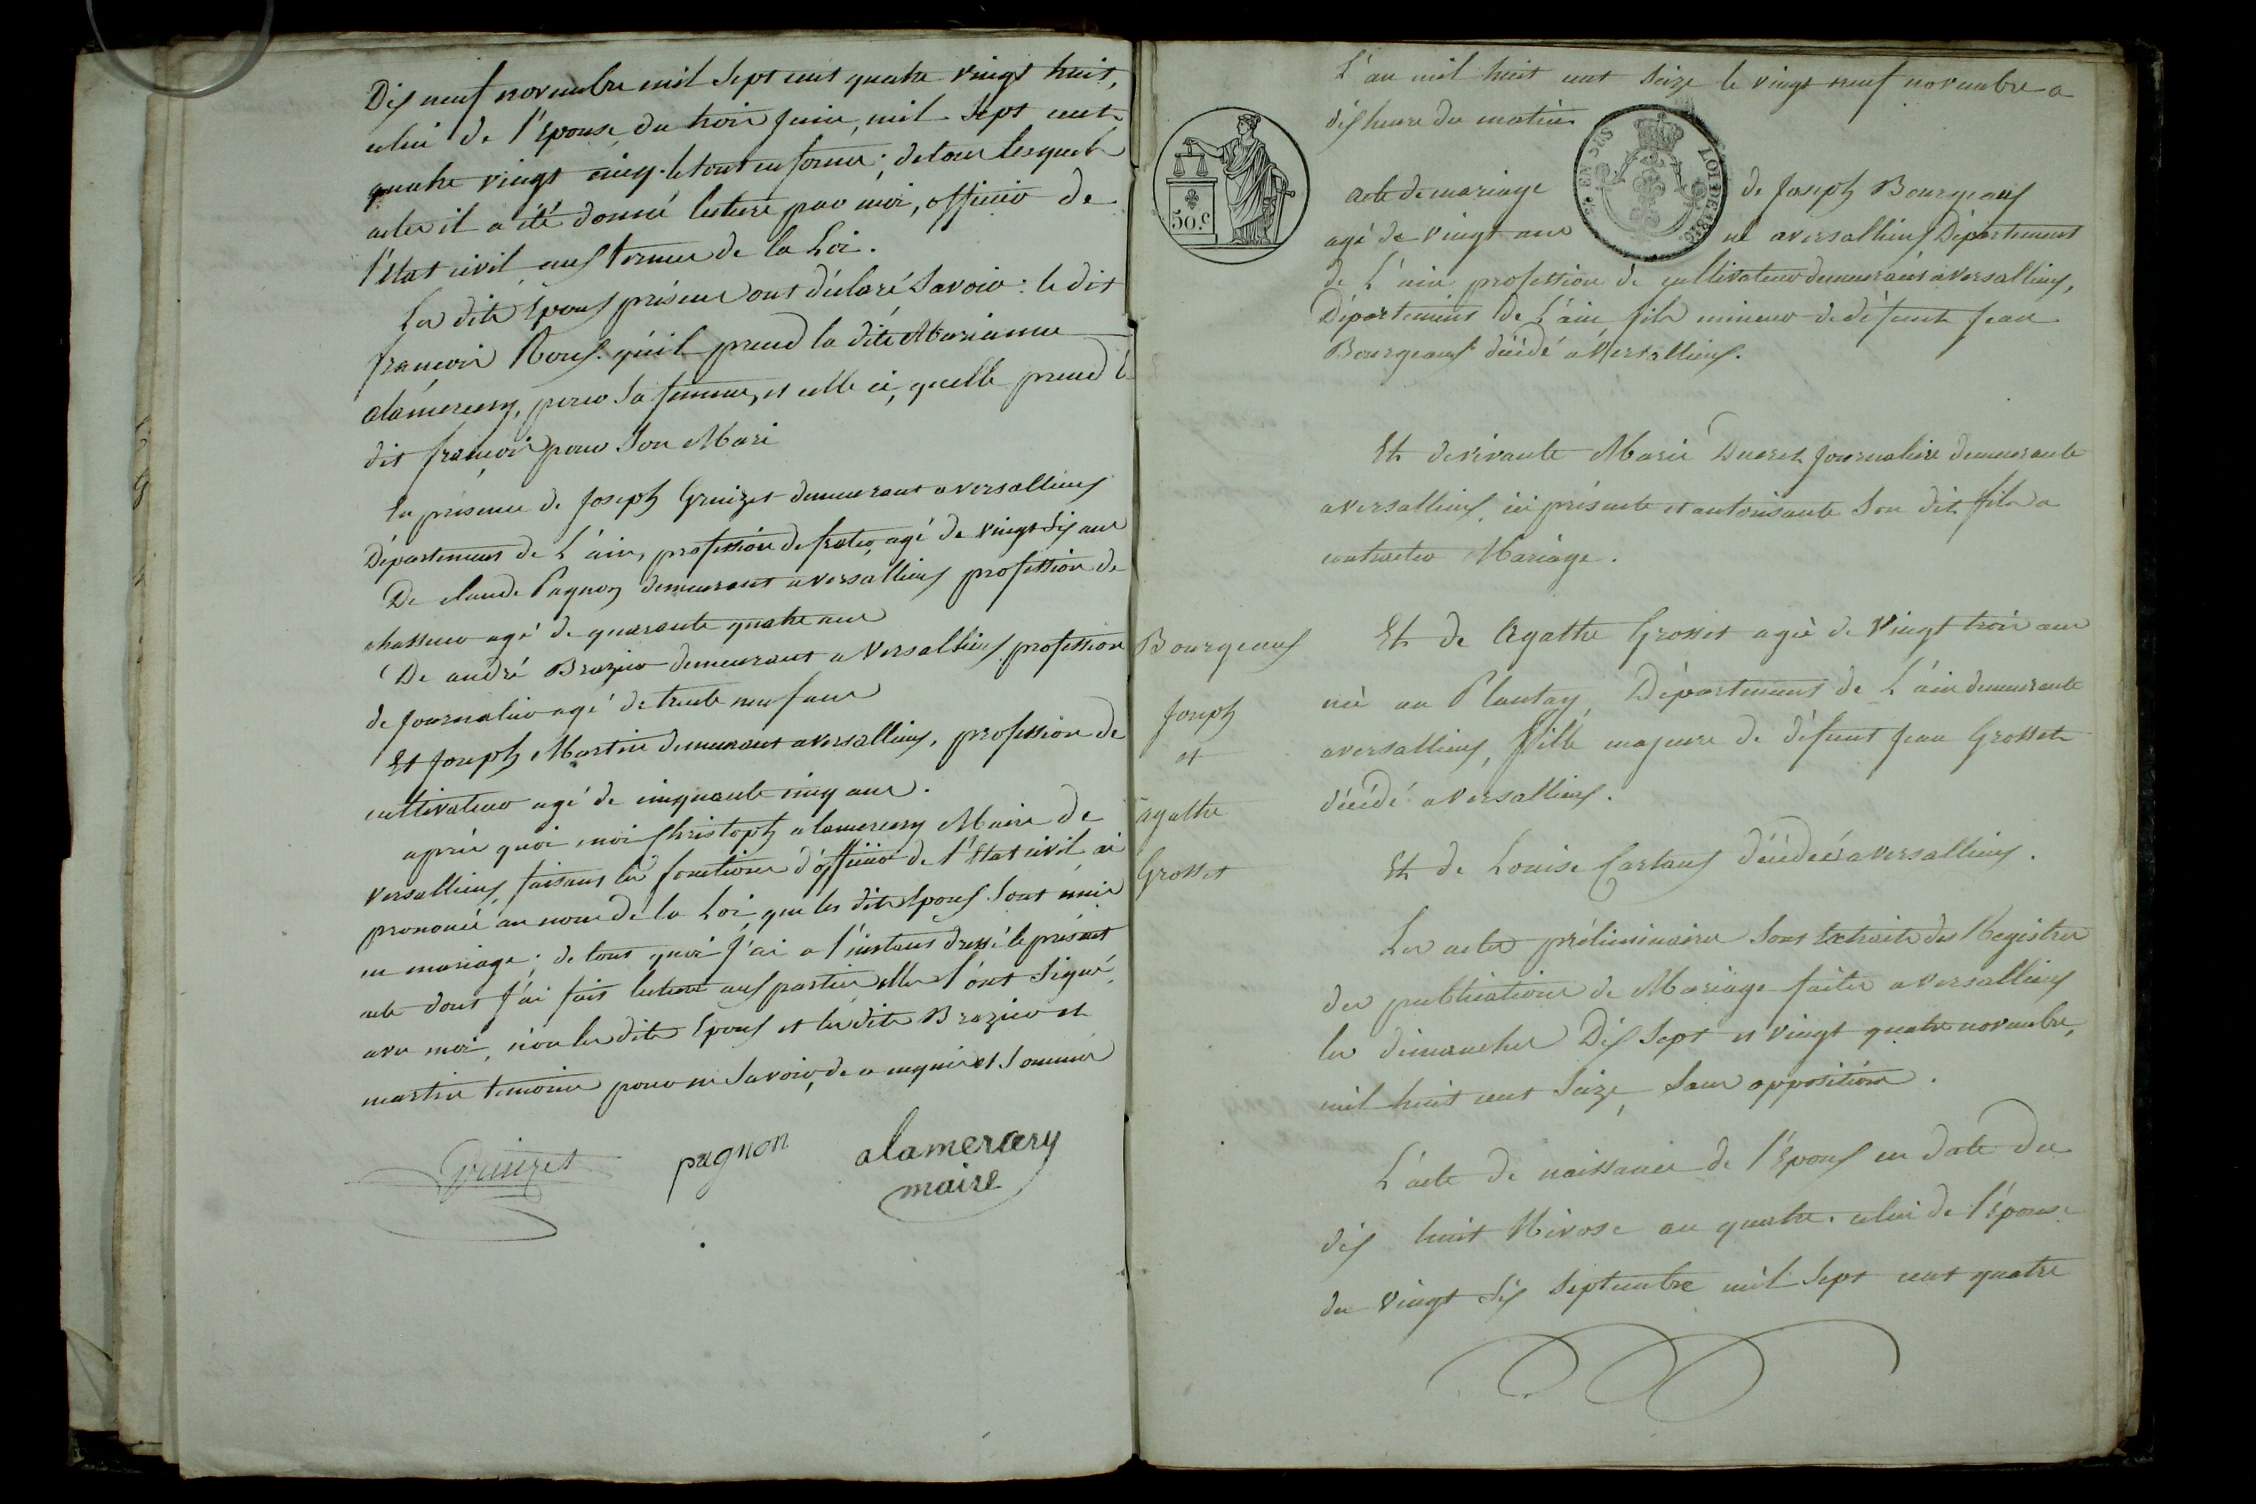 Dix neuf novembre mil Sept cent quatre vingt huit,
celui de l'Epouse du trois juin, mil Sept cent
quatre vingt cinq. le tout en forme; de tous lesquels
actes il a été donné lecture par moi, officier de
l'état civil aux termes de la Loi.
Les dits Epoux présens ont déclaré Savoir: le dit
françois Roux qu'il prend la dite Marianne
alamercery, pour Sa femme, et celle ci, quelle prend le
dit françois pour Son Mari
En présence de Joseph Gruizet demeurant a versallieux
Département de L'ain, profession de frater, agé de vingt Six ans
De claude Pagnon demeurant a versallieux profession de
chasseur agé de quarante quatre ans
De andré Brazier demeurant a versallieux profession
de journalier agé de trente neuf ans
Et Joseph Martin demeurant a versallieux, profession de
cultivateur agé de cinquante cinq ans.
après quoi moi Christoph alamercery Maire de
versallieux, faisant les fonctions d'officier de l'Etat civil ai
prononcé au nom de la Loi, que les dits Epoux Sont unis
en mariage; de tout quoi j'ai a l'instant dressé le présent
acte dont j'ai fait lecture aux parties, elles l'ont Signé,
avec moi, non les dits Epoux et les dits Brazier et
martin temoins pour ne Savoir, de ce enquis et Sommés
pagnon
alamercery
maire
L'an mil huit cent Seize le vingt neuf novembre a
dix heure du matin
EN SUS
LOI DE 1816
50.c
acte de mariage de Joseph Bourgeaux
agé de vingt ans né a versallieux Département
de L'ain profession de cultivateur demeurant a versallieux,
Département de L'ain, fils mineur de défunt jean
Bourgeaux décédé a Versallieux.
Et de vivante Marie Ducret journaliere demeurante
a versallieux, ici présente et autorisante Son dit fils a
contracter Mariage.
Bourgeaux
Joseph
et
agathe
Grosset
Et de Agathe Grosset agée de vingt trois ans
née au Plantay, Département de L'ain demeurante
a versallieux, fille majeure de défunt jean Grosset
décédé a versallieux.
Et de Louise Cartaux décédée a versallieux.
Les actes préliminaires Sont Extraits des Registres
des publications de Mariage faites a versallieux
les dimanches Dix Sept et vingt quatre novembre,
mil huit cent Seize, Sans opposition.
L'acte de naissance de l'Epoux en date du
dix huit Nivose an quatre. celui de l'Epouse
du vingt Six Septembre mil Sept cent quatre